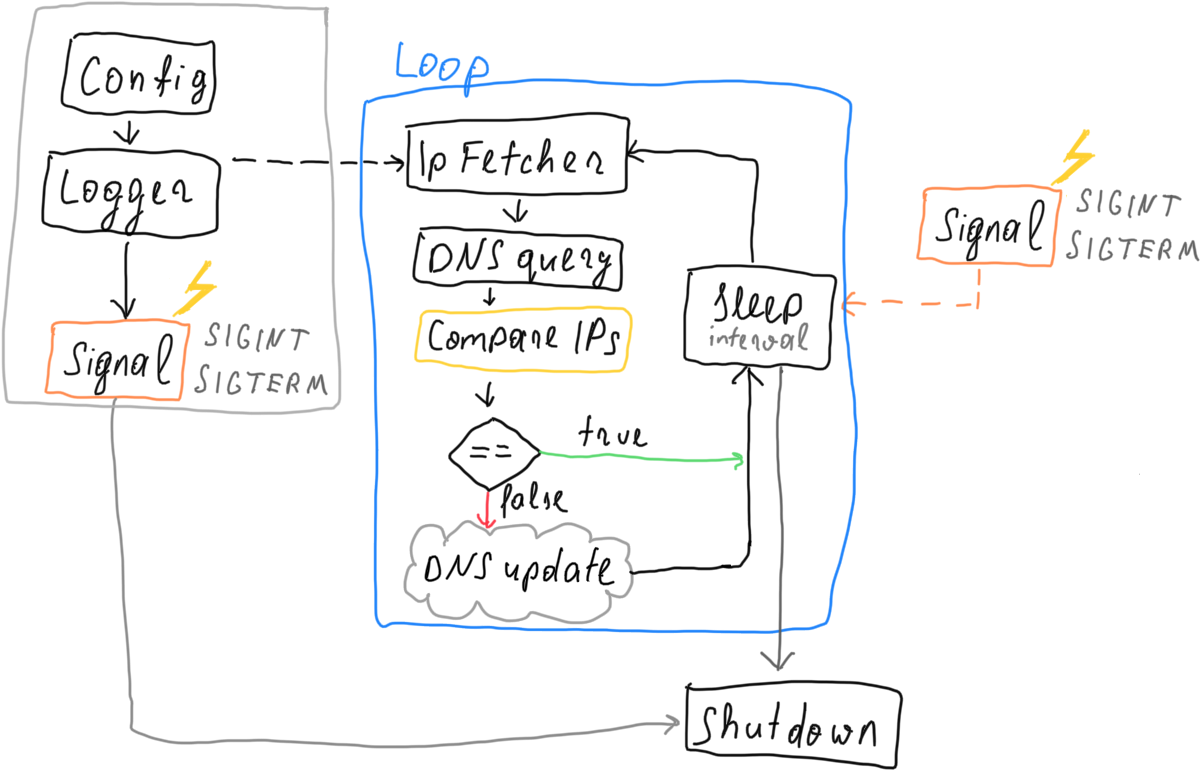 Config
Logger
Signal
SIGINT
SIGTERM
Loop
Ip Fetcher
DNS query
Compare IPs
==
true
false
DNS update
Sleep
interval
Signal
SIGINT
SIGTERM
Shutdown